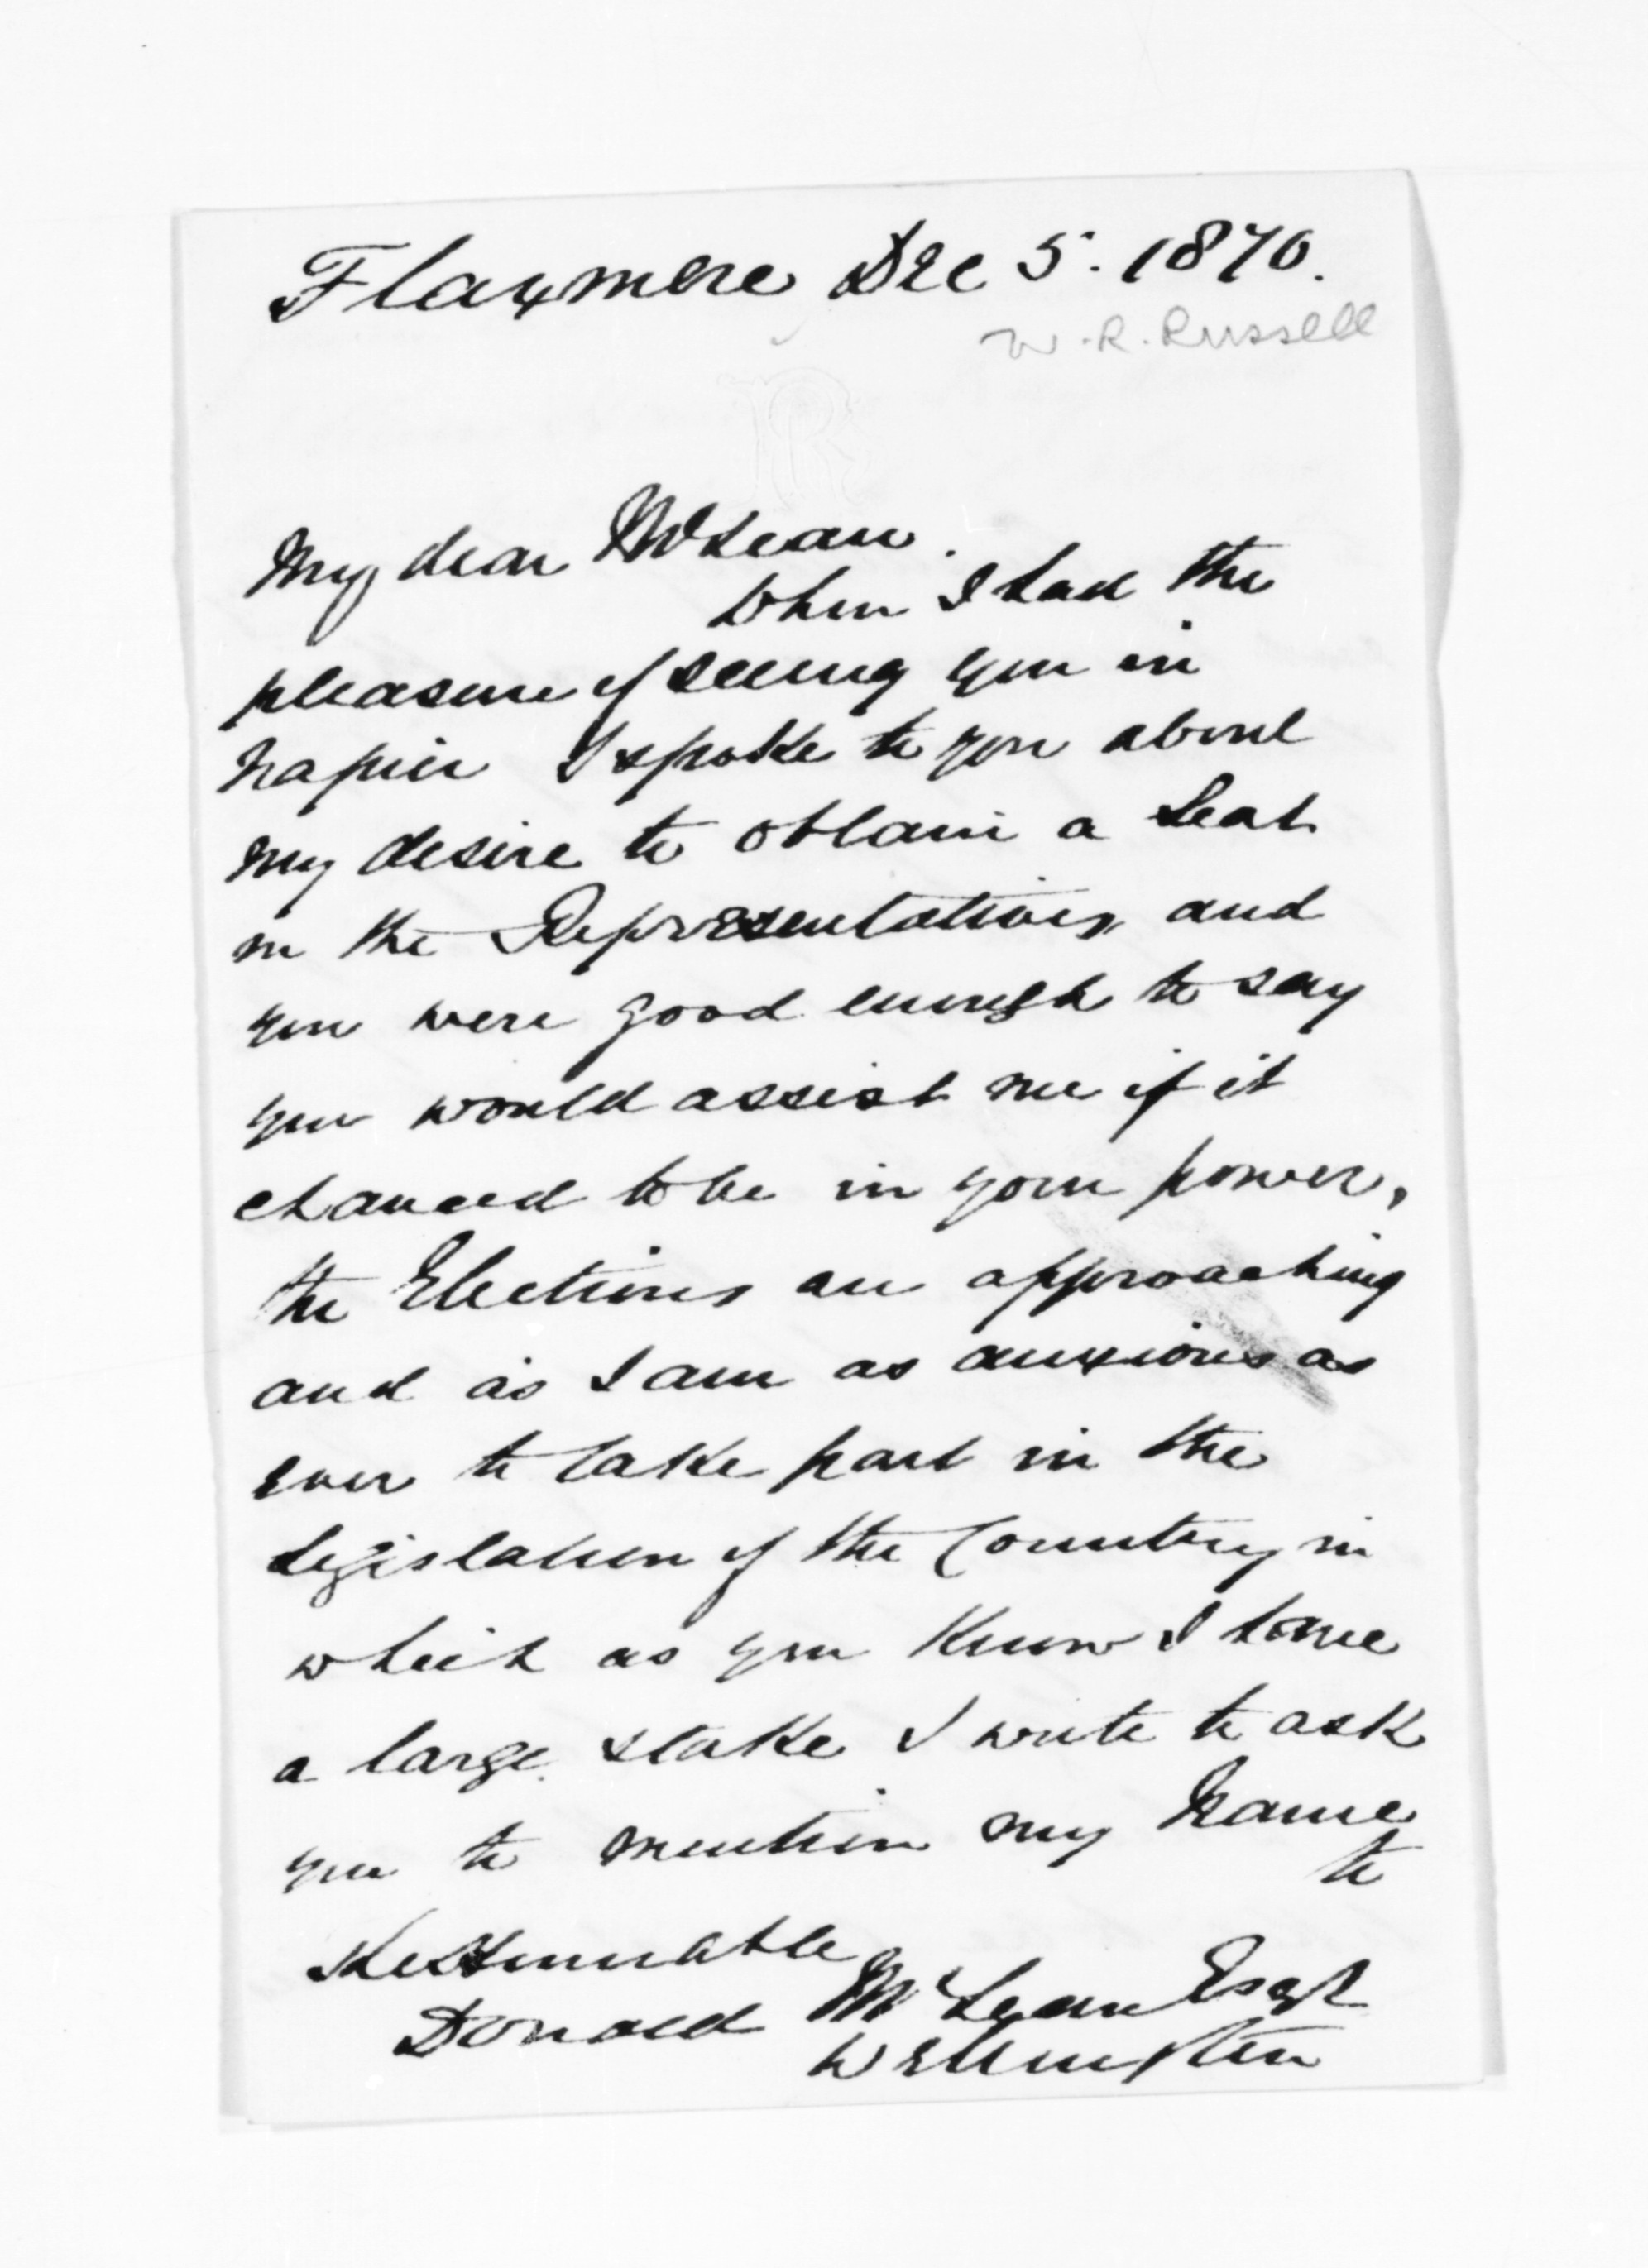 Flaxmere Dec 5. 1870.
W. R. Russell
R
My dear McLean.
When I had the
pleasure of seeing you in
Napier I spoke to you about
my desire to obtain a seat
in the Representatives, and
you were good enough to say
you would assist me if it
chanced to be in your power,
the Elections are approaching
and as I am as anxious as
ever to take part in the
Legislation of the Country in
which as you know I have
a large stake I write to ask
you to mention my name
to
The Honourable
Donald McLean Esqr
Wellington